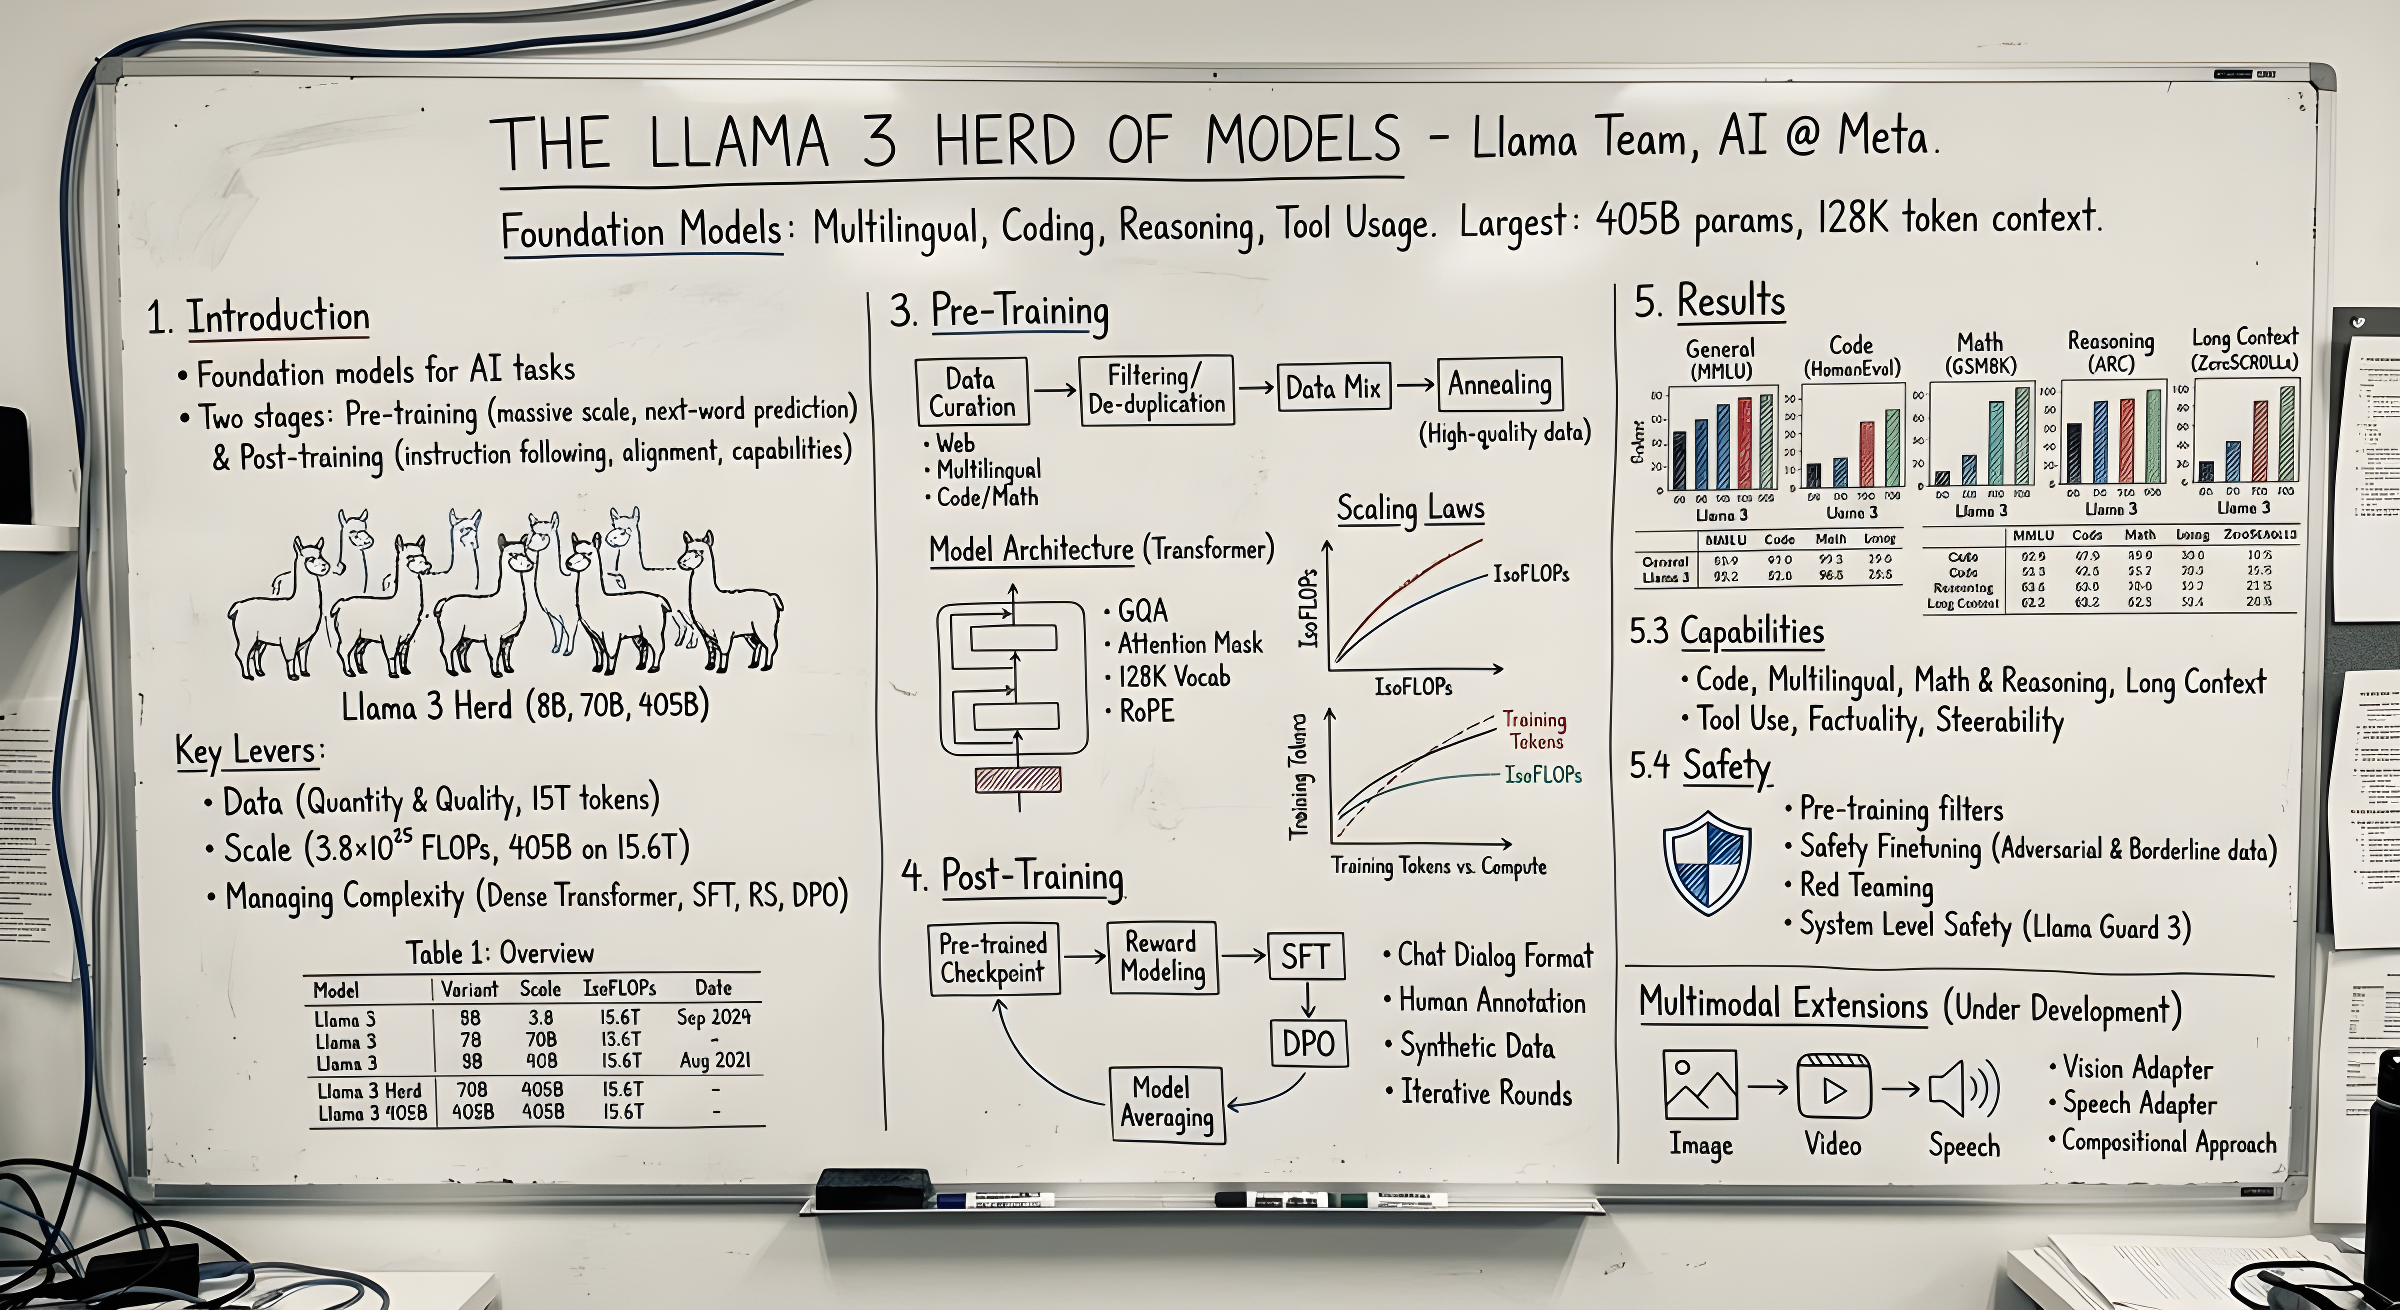 THE LLAMA 3 HERD OF MODELS - Llama Team, AI @ Meta.
Foundation Models: Multilingual, Coding, Reasoning, Tool Usage. Largest: 405B params, 128K token context.
1. Introduction
• Foundation models for AI tasks
• Two stages: Pre-training (massive scale, next-word prediction)
& Post-training (instruction following, alignment, capabilities)
Llama 3 Herd (8B, 70B, 405B)
Key Levers:
• Data (Quantity & Quality, 15T tokens)
• Scale (3.8×10²⁵ FLOPs, 405B on 15.6T)
• Managing Complexity (Dense Transformer, SFT, RS, DPO)
Table 1: Overview
Model Variant Scale IsoFLOPs Date
Llama 3 3.8 15.6T Sep
Llama 3 70B 13.6T -
Llama 3 15.6T Aug 2021
Llama 3 Herd 70B 405B 15.6T -
Llama 3 405B 405B 405B 15.6T -
3. Pre-Training
Data
Curation
Filtering/
De-duplication
Data Mix
Annealing
(High-quality data)
• Web
• Multilingual
• Code/Math
Model Architecture (Transformer)
• GQA
• Attention Mask
• 128K Vocab
• RoPE
Scaling Laws
IsoFLOPs
IsoFLOPs
IsoFLOPs
Training
Training
Tokens
IsoFLOPs
Training Tokens vs. Compute
4. Post-Training
Pre-trained
Checkpoint
Reward
Modeling
SFT
DPO
Model
Averaging
• Chat Dialog Format
• Human Annotation
• Synthetic Data
• Iterative Rounds
5. Results
General
(MMLU)
Code
(HomanEval)
Math
(GSM8K)
Reasoning
(ARC)
Long Context
Llama 3
Llama 3
Llama 3
Llama 3
Llama 3
Code Math
Llama 3
MMLU Code Math
Reasoning
5.3 Capabilities
• Code, Multilingual, Math & Reasoning, Long Context
• Tool Use, Factuality, Steerability
5.4 Safety
• Pre-training filters
• Safety Finetuning (Adversarial & Borderline data)
• Red Teaming
• System Level Safety (Llama Guard 3)
Multimodal Extensions (Under Development)
Image
Video
Speech
• Vision Adapter
• Speech Adapter
• Compositional Approach